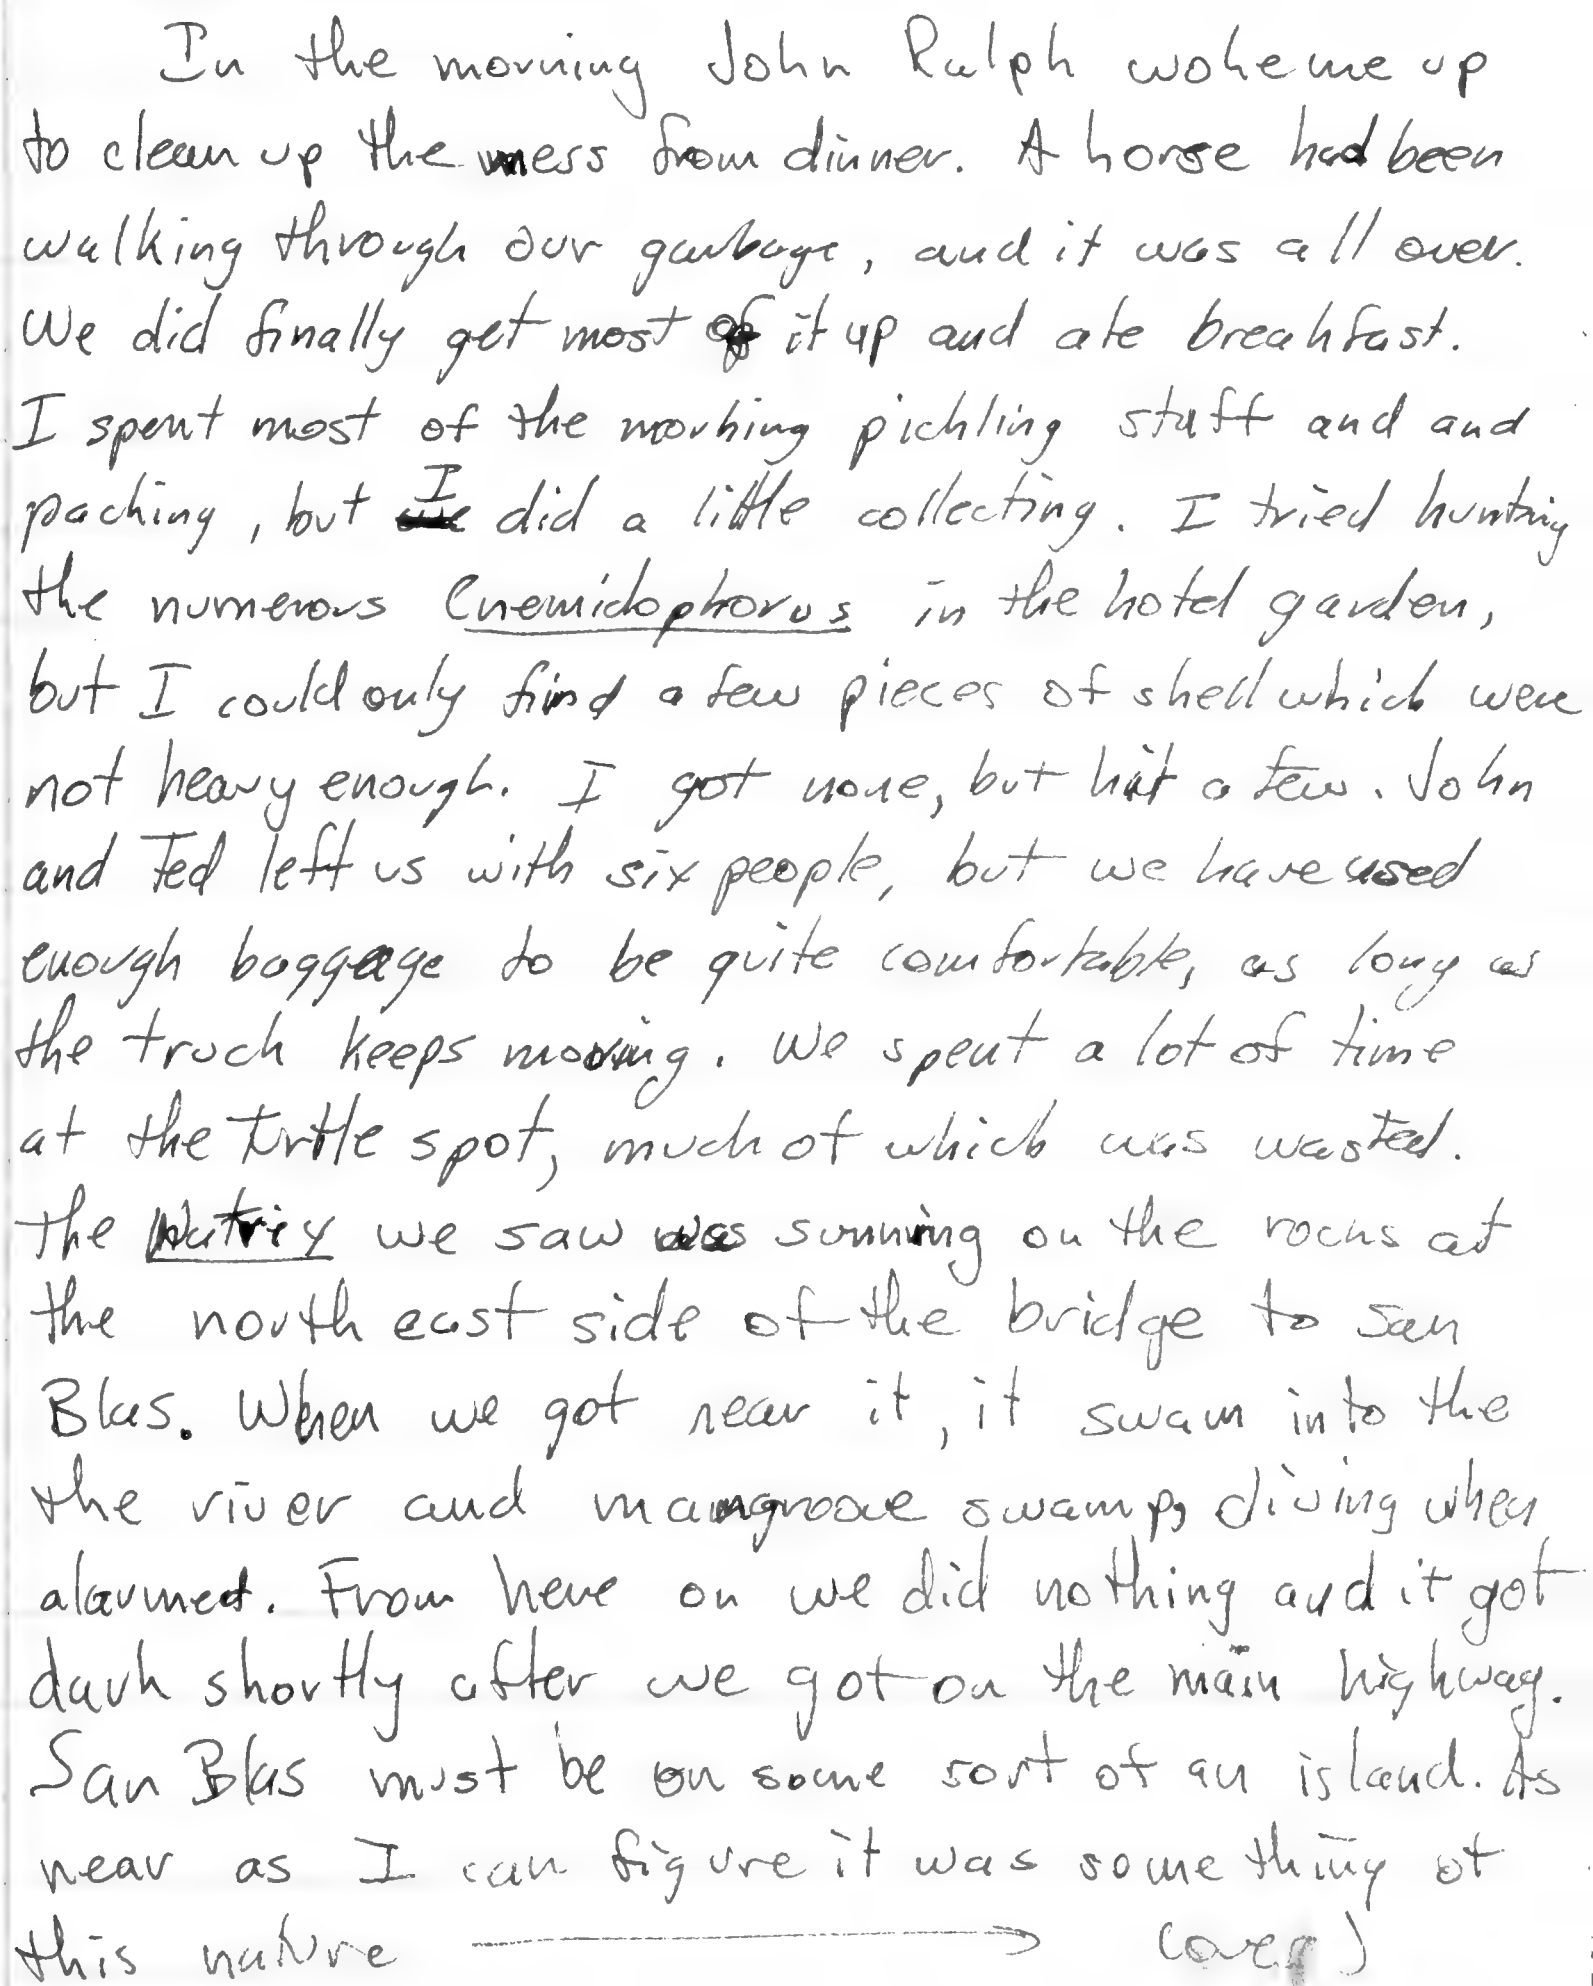 In the morning John Ralph woke me up
to clean up the mess from dinner. A horse had been
walking through our garbage, and it was all over.
We did finally get most of it up and ate breakfast.
I spent most of the morning pickling stuff and and
packing, but I did a little collecting. I tried hunting
the numerous Cnemidophorus in the hotel garden,
but I could only find a few pieces of shell which were
not heavy enough. I got none, but hit a few. John
and Ted left us with six people, but we have used
enough baggage to be quite comfortable, as long as
the truck keeps moving. We spent a lot of time
at the turtle spot, much of which was wasted.
The Natrix we saw was sunning on the rocks at
the north east side of the bridge to San
Blas. When we got near it, it swam into the
the river and mangroove swamp, diving when
alarmed. From here on we did nothing and it got
dark shortly after we got on the main highway.
San Blas must be on some sort of an island. As
near as I can figure it was something of
this nature ⟶ (over)